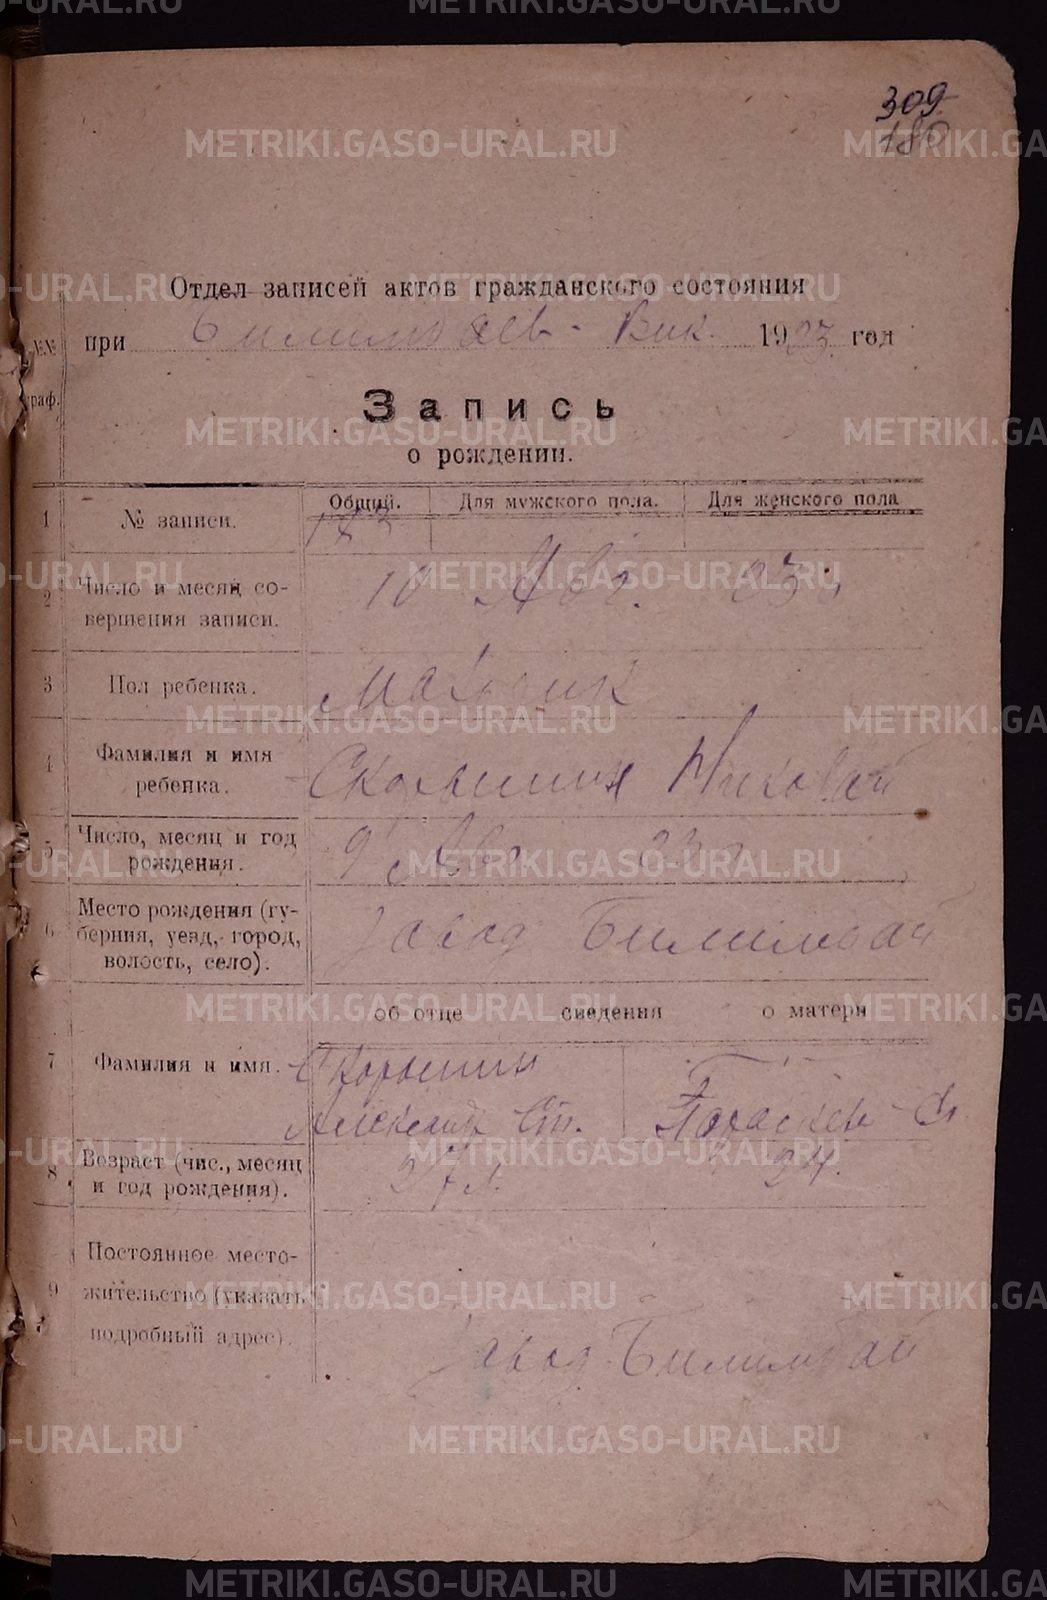 309
180
Отдел записей актов гражданского состояния
№№ при Билимбаев. Вик. 1923 год
граф.
Запись
о рождении.
Общий. Для мужского пола. Для женского пола
1 № записи.
2 Число и месяц со-
вершения записи. 10 Авг. 23 г
3 Пол ребенка. Мальчик
4 Фамилия и имя
ребенка. Скорынин Николай
5 Число, месяц и год
рождения. 9 Авг. 23 г
6 Место рождения (гу-
берния, уезд, город,
волость, село). Завод Билимбай
об отце сведения о матери
7 Фамилия и имя. Скорынин
Александр Ст. Параскев
8 Возраст (чис., месяц
и год рождения). 27 л. 24.
9 Постоянное место-
жительство (указать
подробный адрес).
Завод Билимбай
METRIKI.GASO-URAL.RU